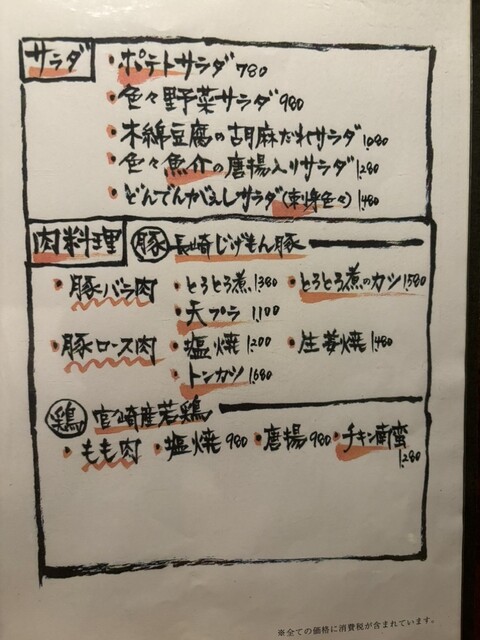 サラダ
・ポテトサラダ 780
・色々野菜サラダ 980
・木綿豆腐の胡麻だれサラダ 1,080
・色々魚介の唐揚入りサラダ 1,280
・どんでんがえしサラダ(刺身色々) 1,480
肉料理 豚 長崎じげもん豚
・豚バラ肉 ・とろとろ煮 1,380 ・とろとろ煮のカツ 1,580
・天プラ 1,100
・豚ロース肉 ・塩焼 1,200 ・生姜焼 1,480
・トンカツ 1,680
鶏 宮崎産若鶏
・もも肉 ・塩焼 980 ・唐揚 980 ・チキン南蛮
1,280
※全ての価格に消費税が含まれています。